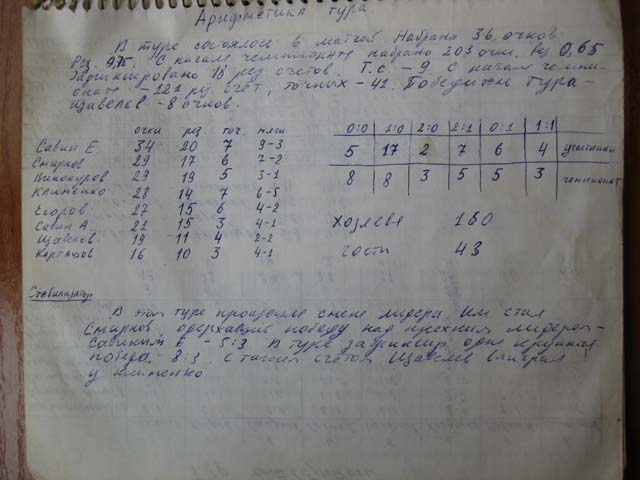 Арифметика тура
В туре состоялось 6 матчей. Набрано 36 очков.
Рез. 9,75. С начала чемпионата набрано 203 очка. Рез 0,65
Зафиксировано 18 рез. счетов, Т.С. – 9 С начала чемпи-
оната – 121 рез. счет, точных – 42. Победитель тура –
Щавелев – 8 очков.
очки рез. точ. мячи
Савин Е 34 20 7 9-3
Смирнов 29 17 6 7-2
Винокуров 29 19 5 3-1
Клименко 28 14 7 6-5
Егоров 27 15 6 4-2
Савин А 21 15 3 4-1
Щавелев 19 11 4 2-2
Карташов 16 10 3 4-1
0:0 1:0 2:0 2:1 0:1 1:1
5 17 2 7 6 4 участники
8 8 3 5 5 3 чемпионат
хозяева 160
гости 43
Стабилизатор
В этом туре произошла смена лидера. Им стал
Смирнов одержавший победу над прежним лидером –
Савиным Е – 5:3 В туре зафиксир. одна крупная
победа – 8:3. С таким счетом Щавелев выиграл
у Клименко